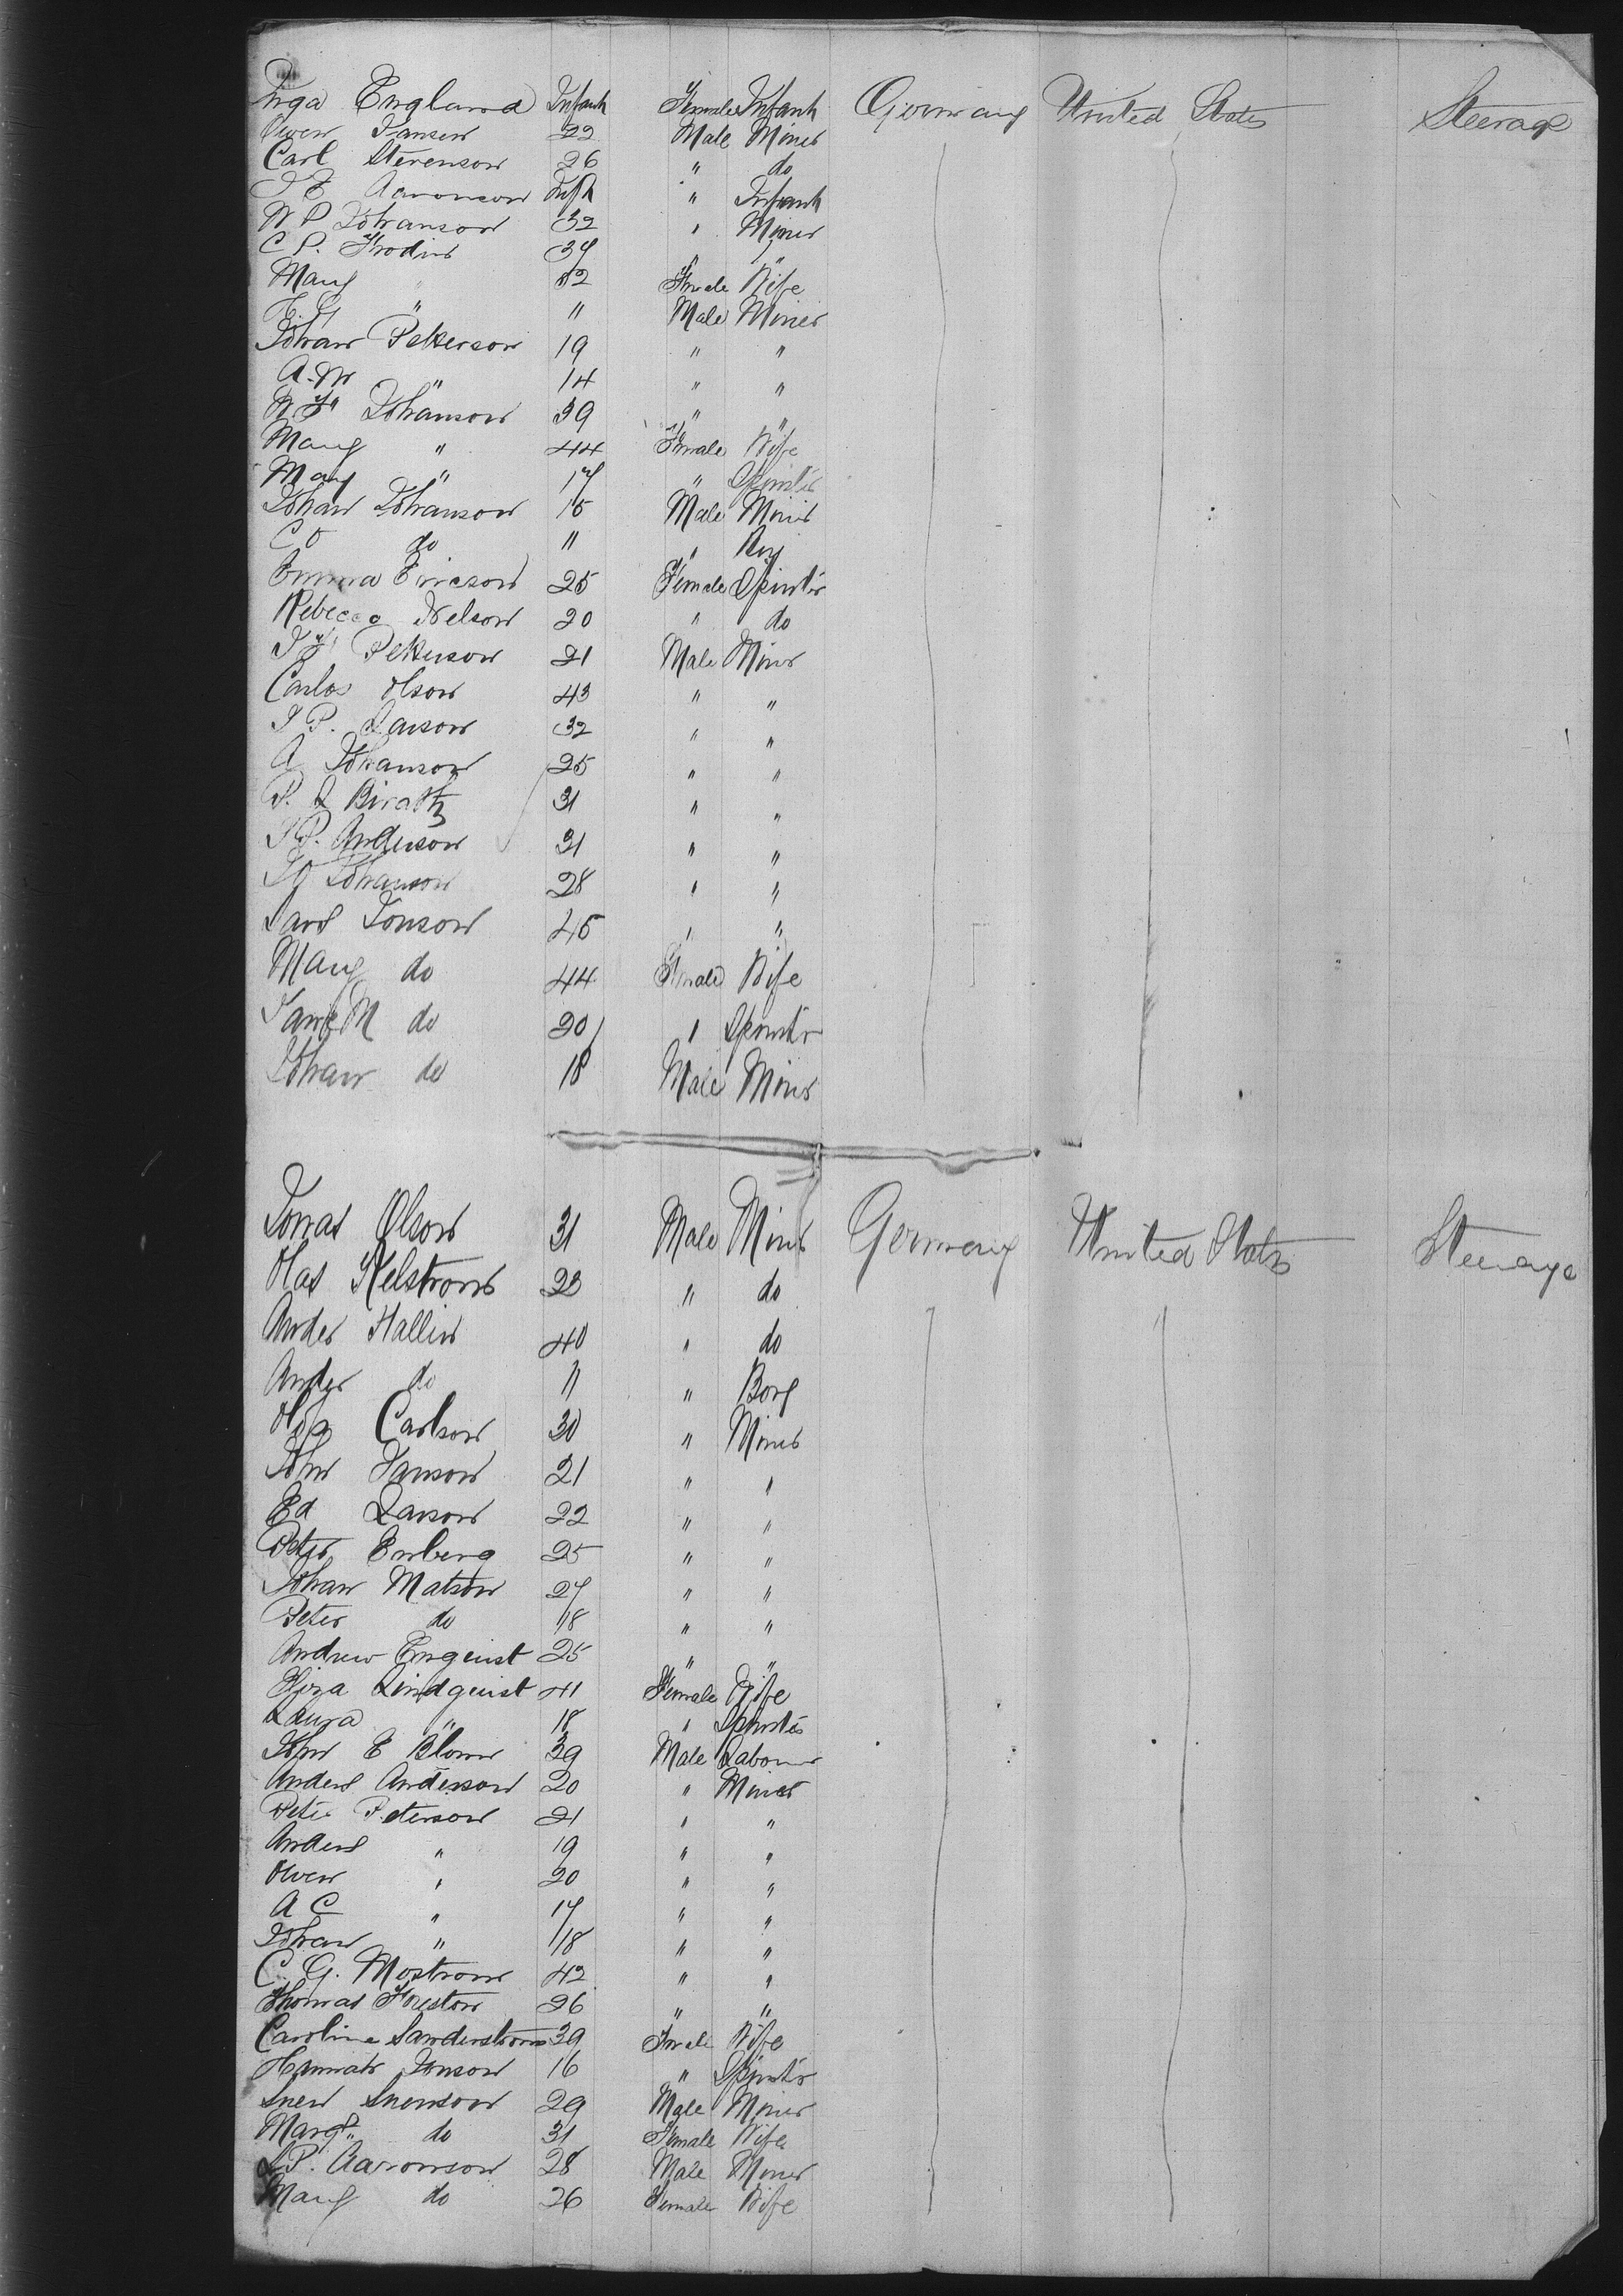 Inga England Infant Female Infant Germany United States Steerage
Owen Hansen 22 Male Miner
Carl Stevenson 26 " do
J E Aaronson Inft " Infant
N P Johanson 32 " Miner
C P. Frodin 34 " "
Mary " 32 Female Wife
" 11 Male Miner
Johan Petterson 19 " "
A. M " 14 " "
N F Johanson 39 " "
Mary " 44 Female Wife
May " 17 " Spinster
Johan Johanson 15 Male Miner
C O do 11 " Boy
Emma Ericson 25 Female Spinster
Rebecca Nelson 20 " do
J F Petterson 21 Male Miner
Carlos Olson 43 " "
J P. Larson 32 " "
A Johanson 25 " "
P. L Birath 31 " "
J P. Anderson 31 " "
J O Johanson 28 " "
Lars Jonson 45 " "
Mary do 44 Female Wife
Jane M do 20 " Spinster
Johan do 18 Male Miner
Jonas Olson 31 Male Miner Germany United States Steerage
Olas Kelstrom 23 " do
Ander Hallin 40 " do
Ander do 11 " Boy
Carlson 30 " Miner
John Hanson 21 " "
Ed Larson 22 " "
Peter Enberg 25 " "
Johan Matson 27 " "
Peter do 18 " "
Andrew Enquist 25 " "
Eliza Lindquist 41 Female Wife
Laura " 18 " Spinster
John E Blom 39 Male Labourer
Anders Anderson 20 " Miner
Peter Peterson 21 " "
Anders " 19 " "
Owen " 20 " "
A C " 17 " "
Johan " 18 " "
C. G. Mostrom 42 " "
Thomas Foreston 26 " "
Caroline Sanderstrom 39 Female Wife
Hannah Jonson 16 " Spinster
Sven Svenson 29 Male Miner
Margt. do 31 Female Wife
L P. Aaronson 28 Male Miner
Mary do 26 Female Wife